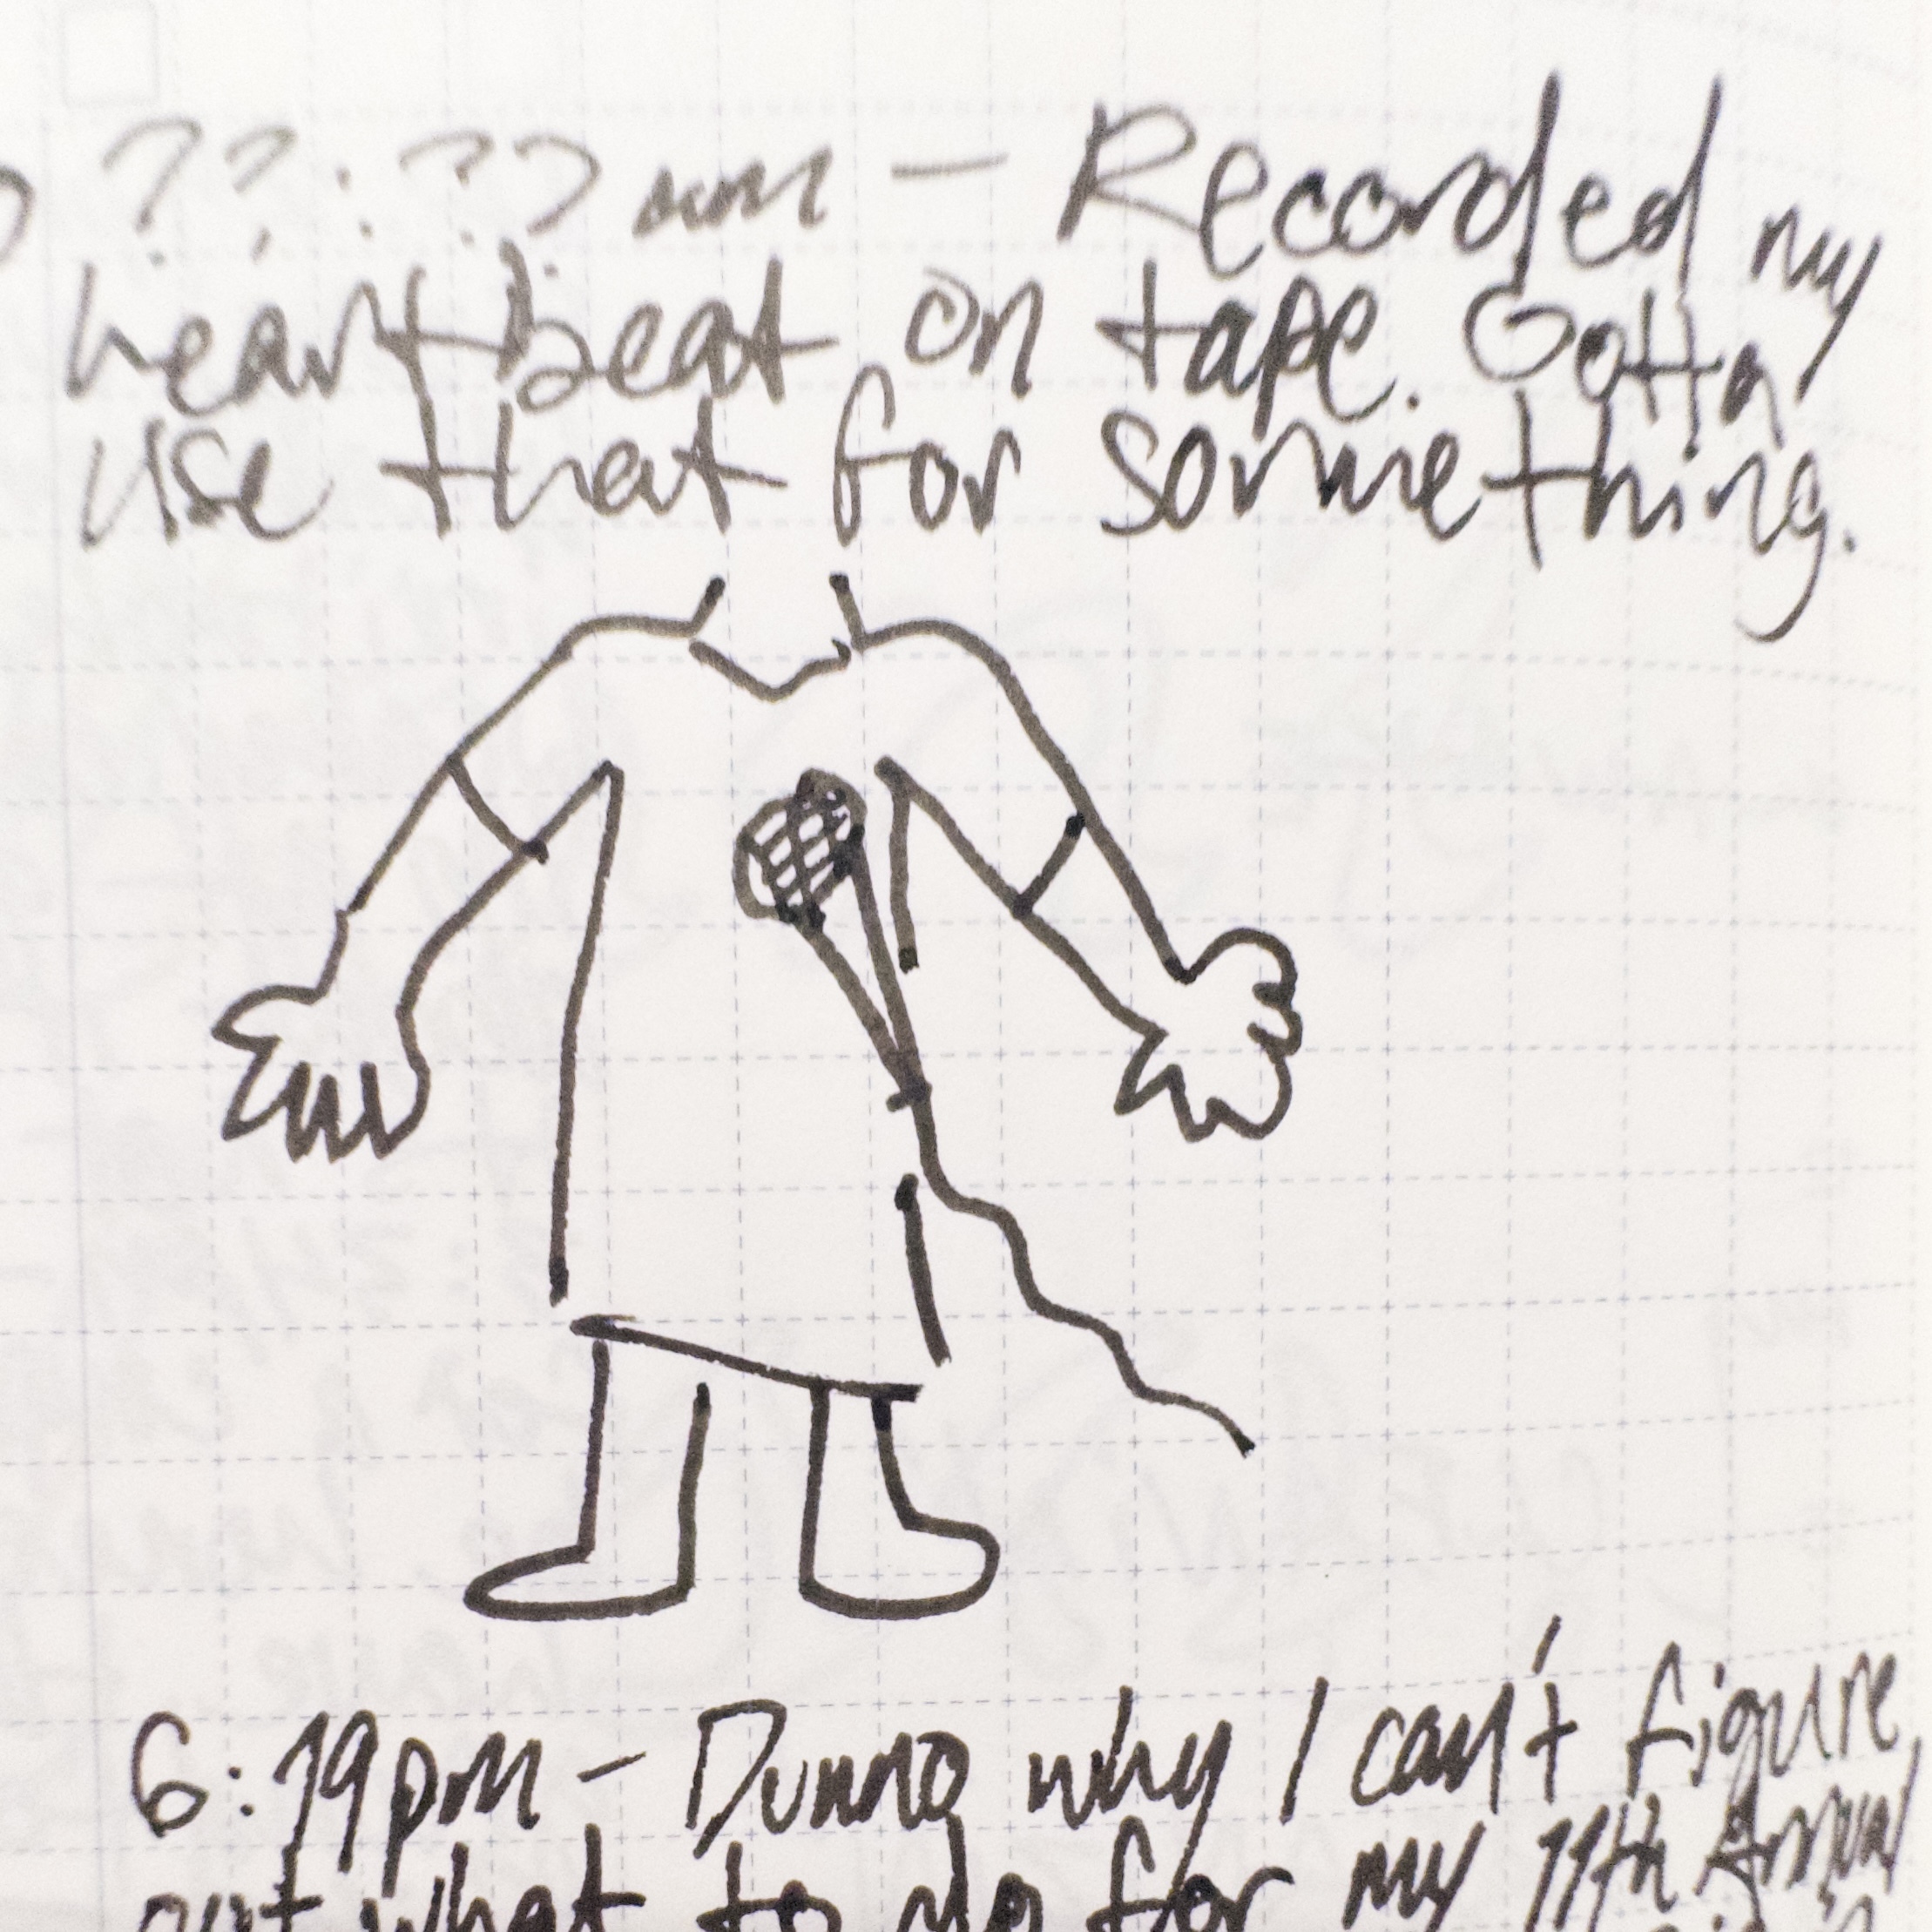 ??:??am — Recorded my
heartbeat on tape. Gotta
use that for something.
6:19pm — Dunno why I can't figure
out what to do for my 11th Annual